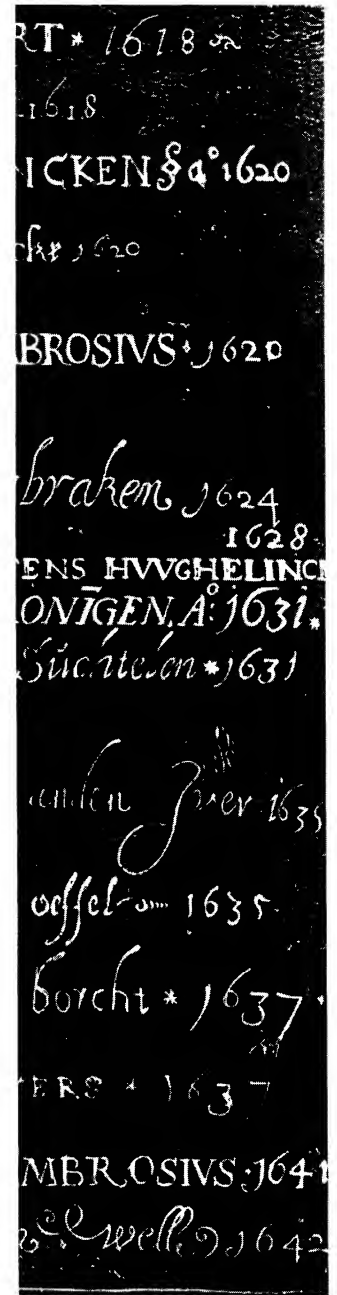 RT * 1618
1618
ICKEN § a° 1620
cke 1620
BROSIVS · 1620
braken 1624
1628
ENS HVVGHELINCK
ONĪGEN, A°: 1631.
Süchtelen * 1631
anden 1635
oeffel 1635
borcht * 1637
ERS * 1637
MBROSIVS · 1641
well 1642